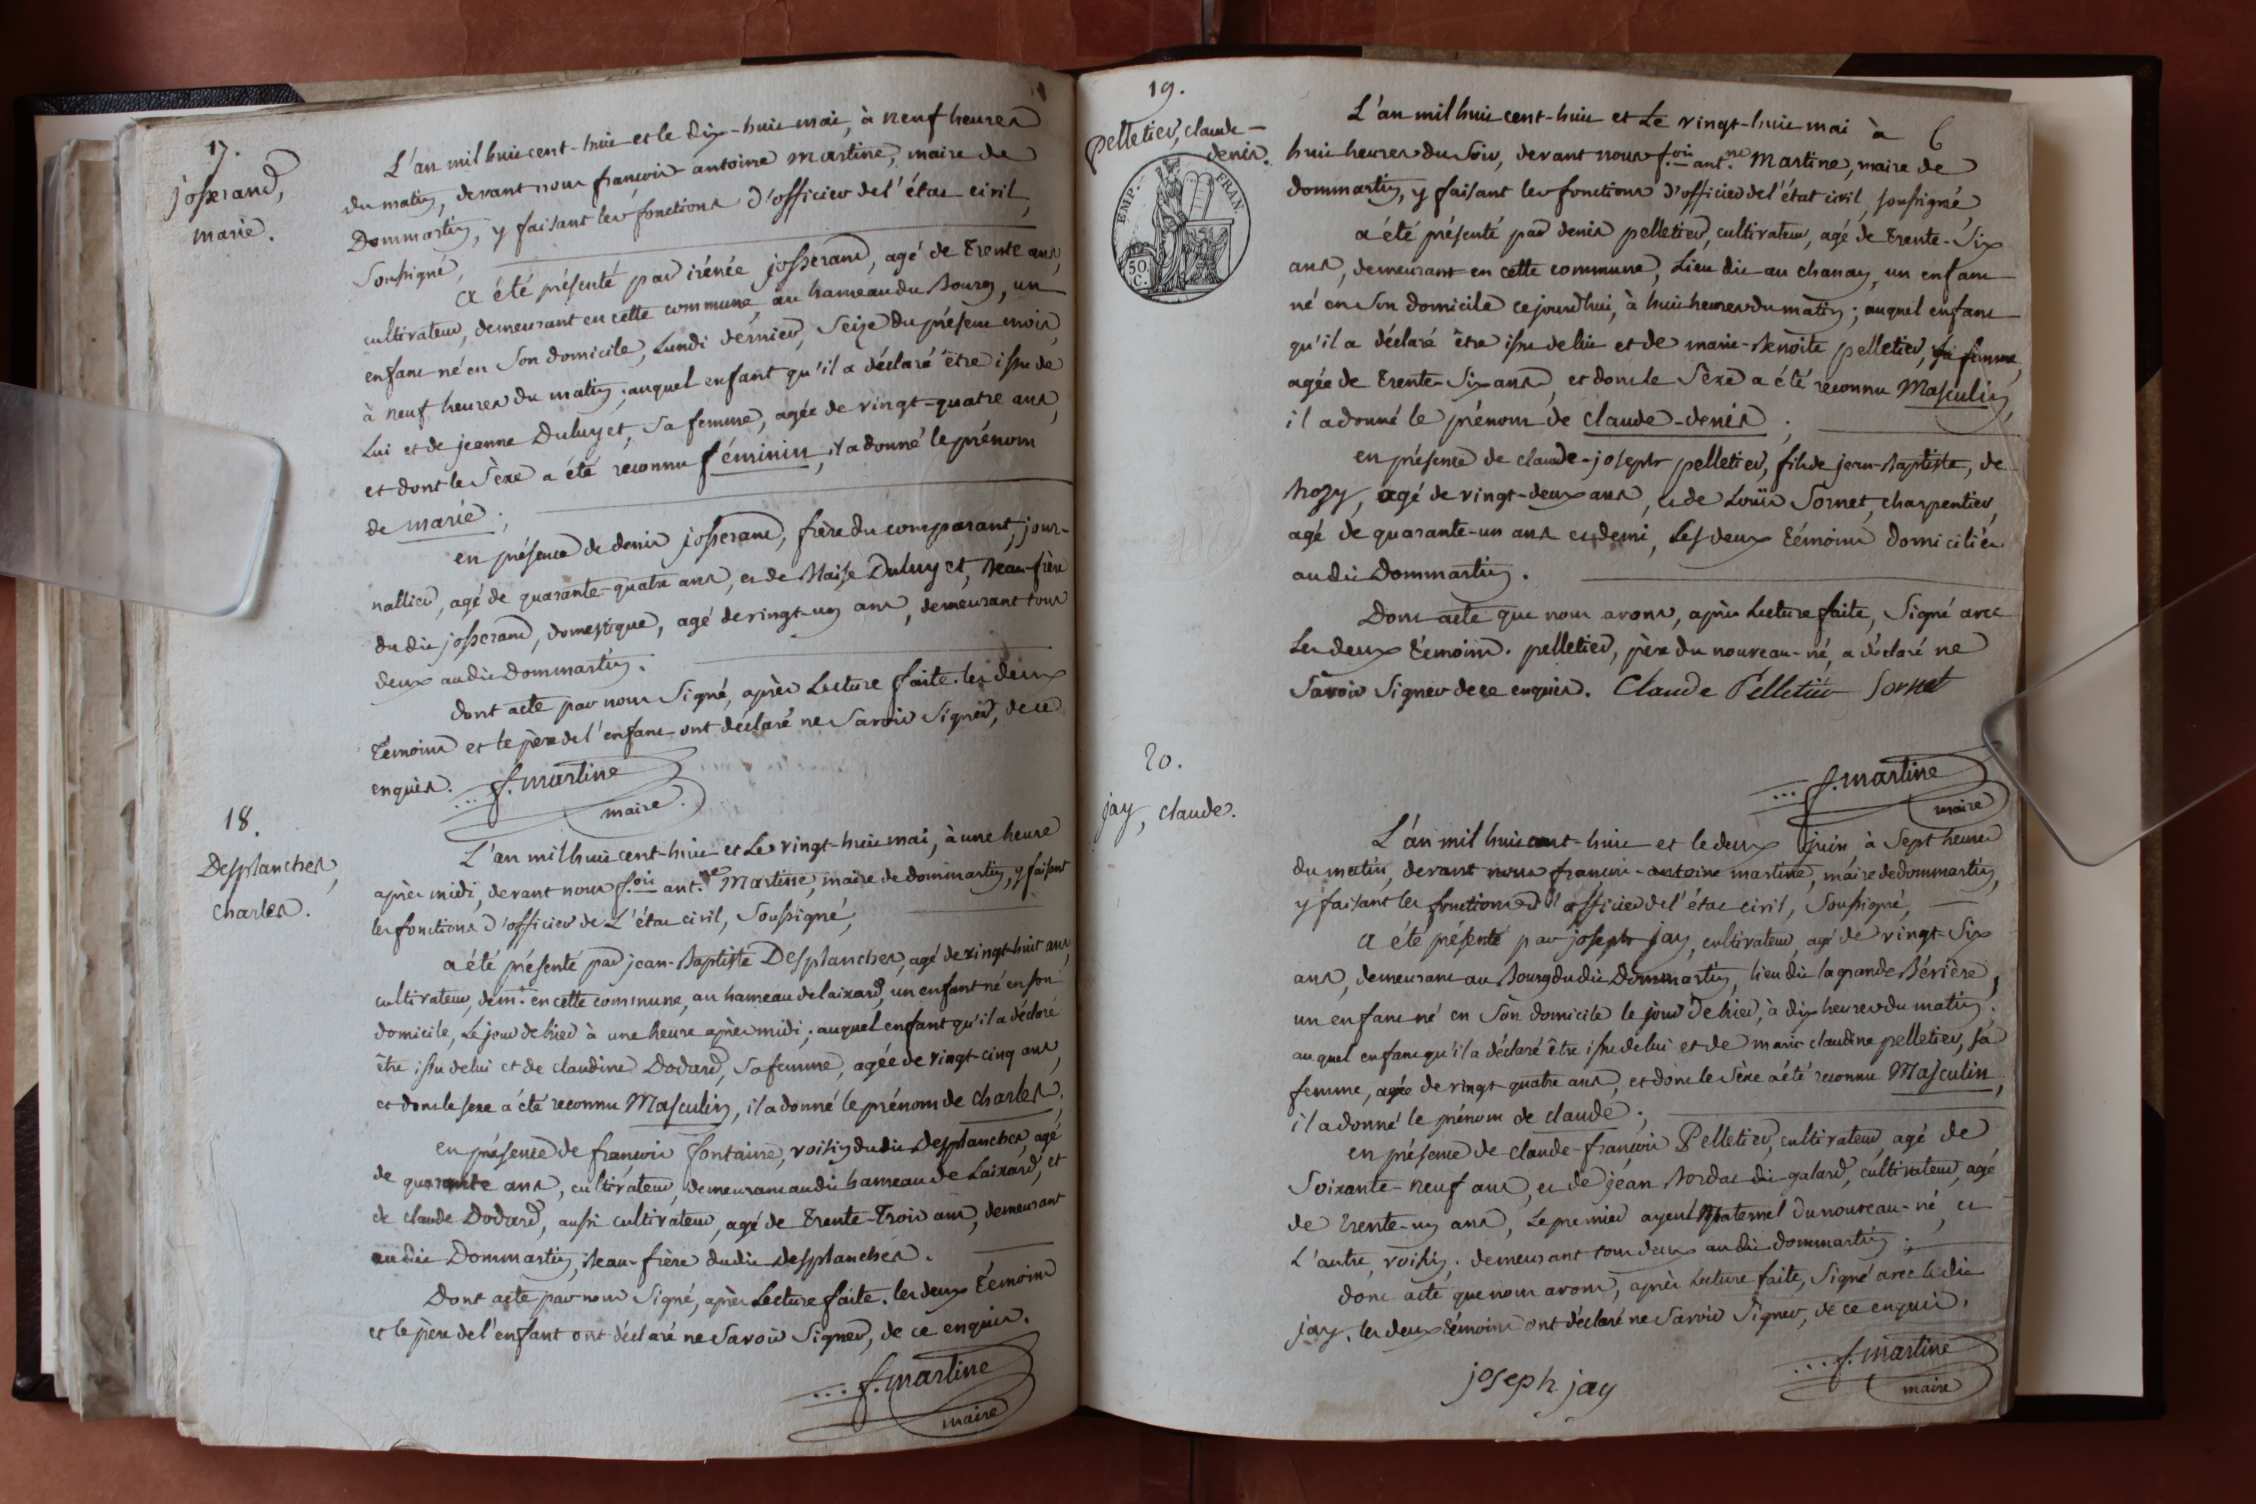 17.
josserand,
marie.
L'an mil huit cent-huit et le dix-huit mai, à neuf heures
du matin, devant nous françois antoine martine, maire de
Dommartin, y faisant les fonctions d'officier de l'état civil,
soussigné,
a été présenté par irénée josserand, agé de trente ans,
cultivateur, demeurant en cette commune, au hameau du Bourg, un
enfant né en son domicile, Lundi dernier, seize du présent mois,
à neuf heures du matin; auquel enfant qu'il a déclaré être issu de
Lui et de jeanne Duluyet, sa femme, agée de vingt-quatre ans,
et dont le sèxe a été reconnu féminin, il a donné le prénom
de marie;
en présence de denis josserand, frère du comparant, jour-
nallier, agé de quarante-quatre ans, et de Blaise Duluyet, beau-frère
du dit josserand, domestique, agé de vingt-un ans, demeurant tous
deux au dit Dommartin.
dont acte par nous signé, après Lecture faite. les deux
témoins et le père de l'enfant ont déclaré ne savoir signer, de ce
enquis. f. martine
maire.
18.
Desplanches,
charles.
L'an mil huit cent-huit et Le vingt-huit mai, à une heure
après midi, devant nous f.ois ant.ne Martine, maire de dommartin, y faisant
les fonctions d'officier de L'état civil, soussigné,
a été présenté par jean-Baptiste Desplanches, agé de vingt-huit ans,
cultivateur, dem.t en cette commune, au hameau de laixard, un enfant né en son
domicile, Le jour de hier à une heure après midi; auquel enfant qu'il a déclaré
être issu de lui et de claudine Dodard, sa femme, agée de vingt-cinq ans,
et dont le sexe a été reconnu Masculin, il a donné le prénom de charles;
en présence de francois fontaine, voisin du dit Desplanches, agé
de quarante ans, cultivateur, demeurant au dit hameau de Laixard, et
de claude Dodard, aussi cultivateur, agé de trente-trois ans, demeurant
au dit Dommartin, beau-frère du dit desplanches.
Dont acte par nous signé, après Lecture faite. les deux témoins
et le père de l'enfant ont déclaré ne savoir signer, de ce enquis.
f. martine
maire
19.
pelletier, claude-
denis.
EMP. FRAN.
50 C.
6
L'an mil huit cent-huit et Le vingt-huit mai à
huit heures du soir, devant nous f.ois ant.ne Martine, maire de
dommartin, y faisant les fonctions d'officier de l'état civil, soussigné,
a été présenté par denis pelletier, cultivateur, agé de trente-six
ans, demeurant en cette commune, Lieu dit au chanay, un enfant
né en son domicile cejourd'hui, à huit heures du matin; auquel enfant
qu'il a déclaré être issu de lui et de marie-Benoite pelletier, sa femme,
agée de trente-six ans, et dont le sèxe a été reconnu Masculin,
il a donné le prénom de claude-denis;
en présence de claude-joseph pelletier, fils de jean-Baptiste, de
hozy, agé de vingt-deux ans, et de Louis Sornet, charpentier,
agé de quarante-un ans et demi, Les deux témoins domiciliés
au dit Dommartin.
Dont acte que nous avons, après Lecture faite, signé avec
Les deux témoins. pelletier, père du nouveau-né, a déclaré ne
savoir signer de ce enquis. Claude Pelletier Sornet
f. martine
maire
20.
jay, claude.
L'an mil huit cent-huit et le deux juin à sept heures
du matin, devant nous françois-antoine martine, maire de dommartin,
y faisant les fonctions d'officier de l'état civil, soussigné,
a été présenté par joseph jay, cultivateur, agé de vingt-six
ans, demeurant au Bourg du dit Dommartin, lieu dit la grande Bérière,
un enfant né en son domicile le jour de hier, à dix heures du matin;
auquel enfant qu'il a déclaré être issu de lui et de marie claudine pelletier, sa
femme, agée de vingt-quatre ans, et dont le sèxe a été reconnu Masculin,
il a donné le prénom de claude;
en présence de claude-françois Pelletier, cultivateur, agé de
soixante-neuf ans, et de jean Bordat dit galard, cultivateur, agé
de trente-un ans, Le premier ayeul Maternel du nouveau-né, et
L'autre, voisin. demeurant tous deux au dit dommartin;
dont acte que nous avons, après Lecture faite, signé avec le dit
jay. les deux témoins ont déclaré ne savoir signer, de ce enquis.
joseph jay
f. martine
maire